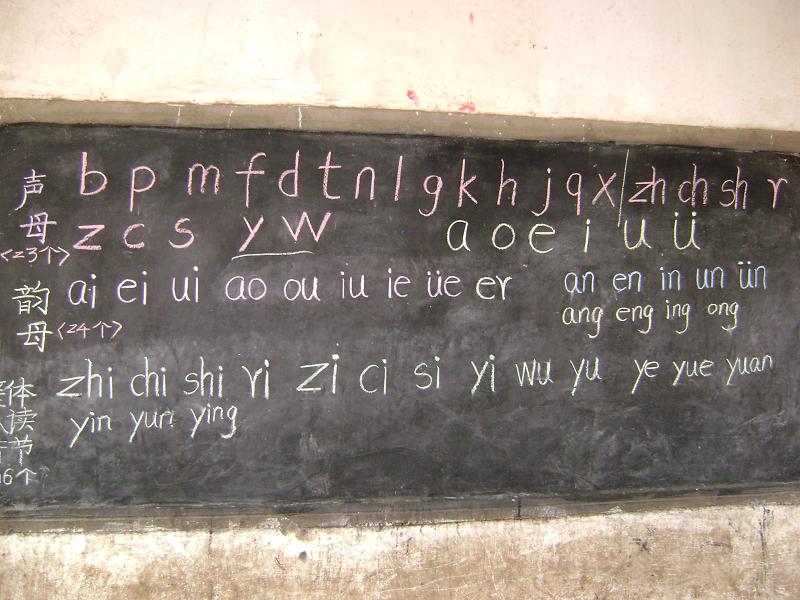 声母 b p m f d t n l g k h j q x zh ch sh r
<23个> z c s y w a o e i u ü
韵母 ai ei ui ao ou iu ie üe er an en in un ün
<24个> ang eng ing ong
体 zhi chi shi ri zi ci si yi wu yu ye yue yuan
读 yin yun ying
节
6个